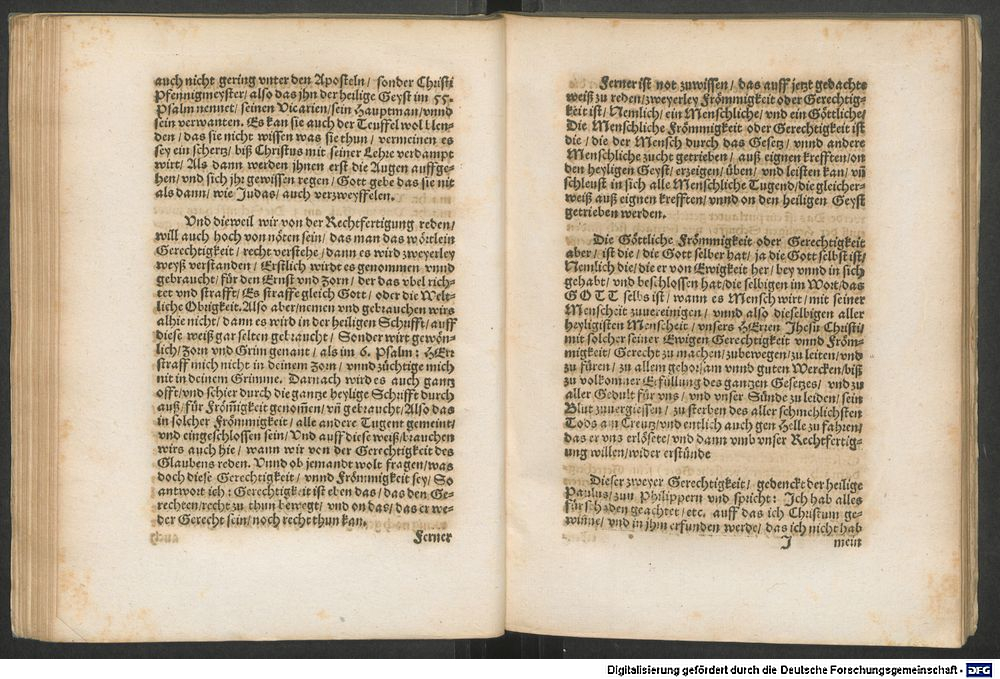 auch nicht gering vnter den Aposteln/ sonder Christi
Pfennigmeyster/ also das jhn der heilige Geyst im 55.
Psalm nennet/ seinen Vicarien/sein Hauptman/vnnd
sein verwanten. Es kan sie auch der Teuffel wol blen-
den/ das sie nicht wissen was sie thun/ vermeinen es
sey ein schertz/ biß Christus mit seiner Lehre verdampt
wirt/ Als dann werden jhnen erst die Augen auffge-
hen/ vnd sich jhr gewissen regen/ Gott gebe das sie nit
als dann/ wie Judas/ auch verzweyffelen.
Vnd dieweil wir von der Rechtfertigung reden/
will auch hoch von nöten sein/ das man das wörtlein
Gerechtigkeit/ recht verstehe/ dann es wird zweyerley
weyß verstanden/ Erstlich wirdt es genommen vnnd
gebraucht/ für den Ernst vnd Zorn/ der das vbel rich-
tet vnd strafft/ Es straffe gleich Gott/ oder die Welt-
liche Obrigkeit. Also aber/nemen vnd gebrauchen wirs
alhie nicht/ dann es wird in der heiligen Schrifft/ auff
diese weiß gar selten gebraucht/ Sonder wirt gewön-
lich/ Zorn vnd Grim genant/ als im 6. Psalm: HErr
straff mich nicht in deinem Zorn/ vnnd züchtige mich
nit in deinem Grimme. Darnach wird es auch gantz
offt/vnd schier durch die gantze heylige Schrifft durch
auß/ für Frömigkeit genom̃en/ vñ gebraucht/ Also das
in solcher Frömigkeit/ alle andere Tugent gemeint/
vnd eingeschlossen sein/ Vnd auff diese weiß/brauchen
wirs auch hie/ wann wir von der Gerechtigkeit des
Glaubens reden. Vnnd ob jemandt wolt fragen/was
doch diese Gerechtigkeit/ vnnd Frömmigkeit sey/ So
antwort ich: Gerechtigkeit ist eben das/ das den Ge-
rechten/recht zu thun bewegt/ vnd on das/ das er we-
der Gerecht sein/noch recht thun kan.
Ferner
Ferner ist not zuwissen/ das auff jetzt gedachte
weiß zu reden/zweyerley Frömmigkeit oder Gerechtig-
keit ist/ Nemlich/ ein Menschliche/ vnd ein Göttliche/
Die Menschliche Frömmigkeit oder Gerechtigkeit ist
die/ die der Mensch durch das Gesetz/ vnnd andere
Menschliche zucht getrieben/ auß eignen krefften/on
den heyligen Geyst/ erzeigen/ üben/ vnd leisten kan/ vñ
schleust in sich alle Menschliche Tugend/die gleicher-
weiß auß eignen krefften/ vnnd on den heiligen Geyst
getrieben werden.
Die Göttliche Frömmigkeit oder Gerechtigkeit
aber/ ist die/ die Gott selber hat/ ja die Gott selbst ist/
Nemlich die/die er von Ewigkeit her/ bey vnnd in sich
gehabt/ vnd beschlossen hat/die selbigen im Wort/das
GOTT selbs ist/ wann es Mensch wirt/ mit seiner
Menscheit zuuereinigen/ vnnd also dieselbigen aller
heyligisten Menscheit/ vnsers HErren Jhesu Christi/
mit solcher seiner Ewigen Gerechtigkeit vnnd Fröm-
migkeit/ Gerecht zu machen/zubewegen/zu leiten/vnd
zu füren/ zu allem gehorsam vnnd guten Wercken/biß
zu volkomner Erfüllung des gantzen Gesetzes/ vnd zu
aller Gedult für vns/ vnd vnser Sünde zu leiden/ sein
Blut zuuergiessen/ zu sterben des aller schmehlichsten
Tods am Creutz/vnd entlich auch gen Helle zu fahren/
das er vns erlösete/vnd dann vmb vnser Rechtfertig-
gung willen/wider erstünde
Dieser zweyer Gerechtigkeit/ gedenckt der heilige
Paulus/ zun Philippern vnd spricht: Ich hab alles
für schaden geachtet/etc. auff das ich Christum ge-
winne/ vnd in jhm erfunden werde/ das ich nicht hab
J mein
Digitalisierung gefördert durch die Deutsche Forschungsgemeinschaft - DFG